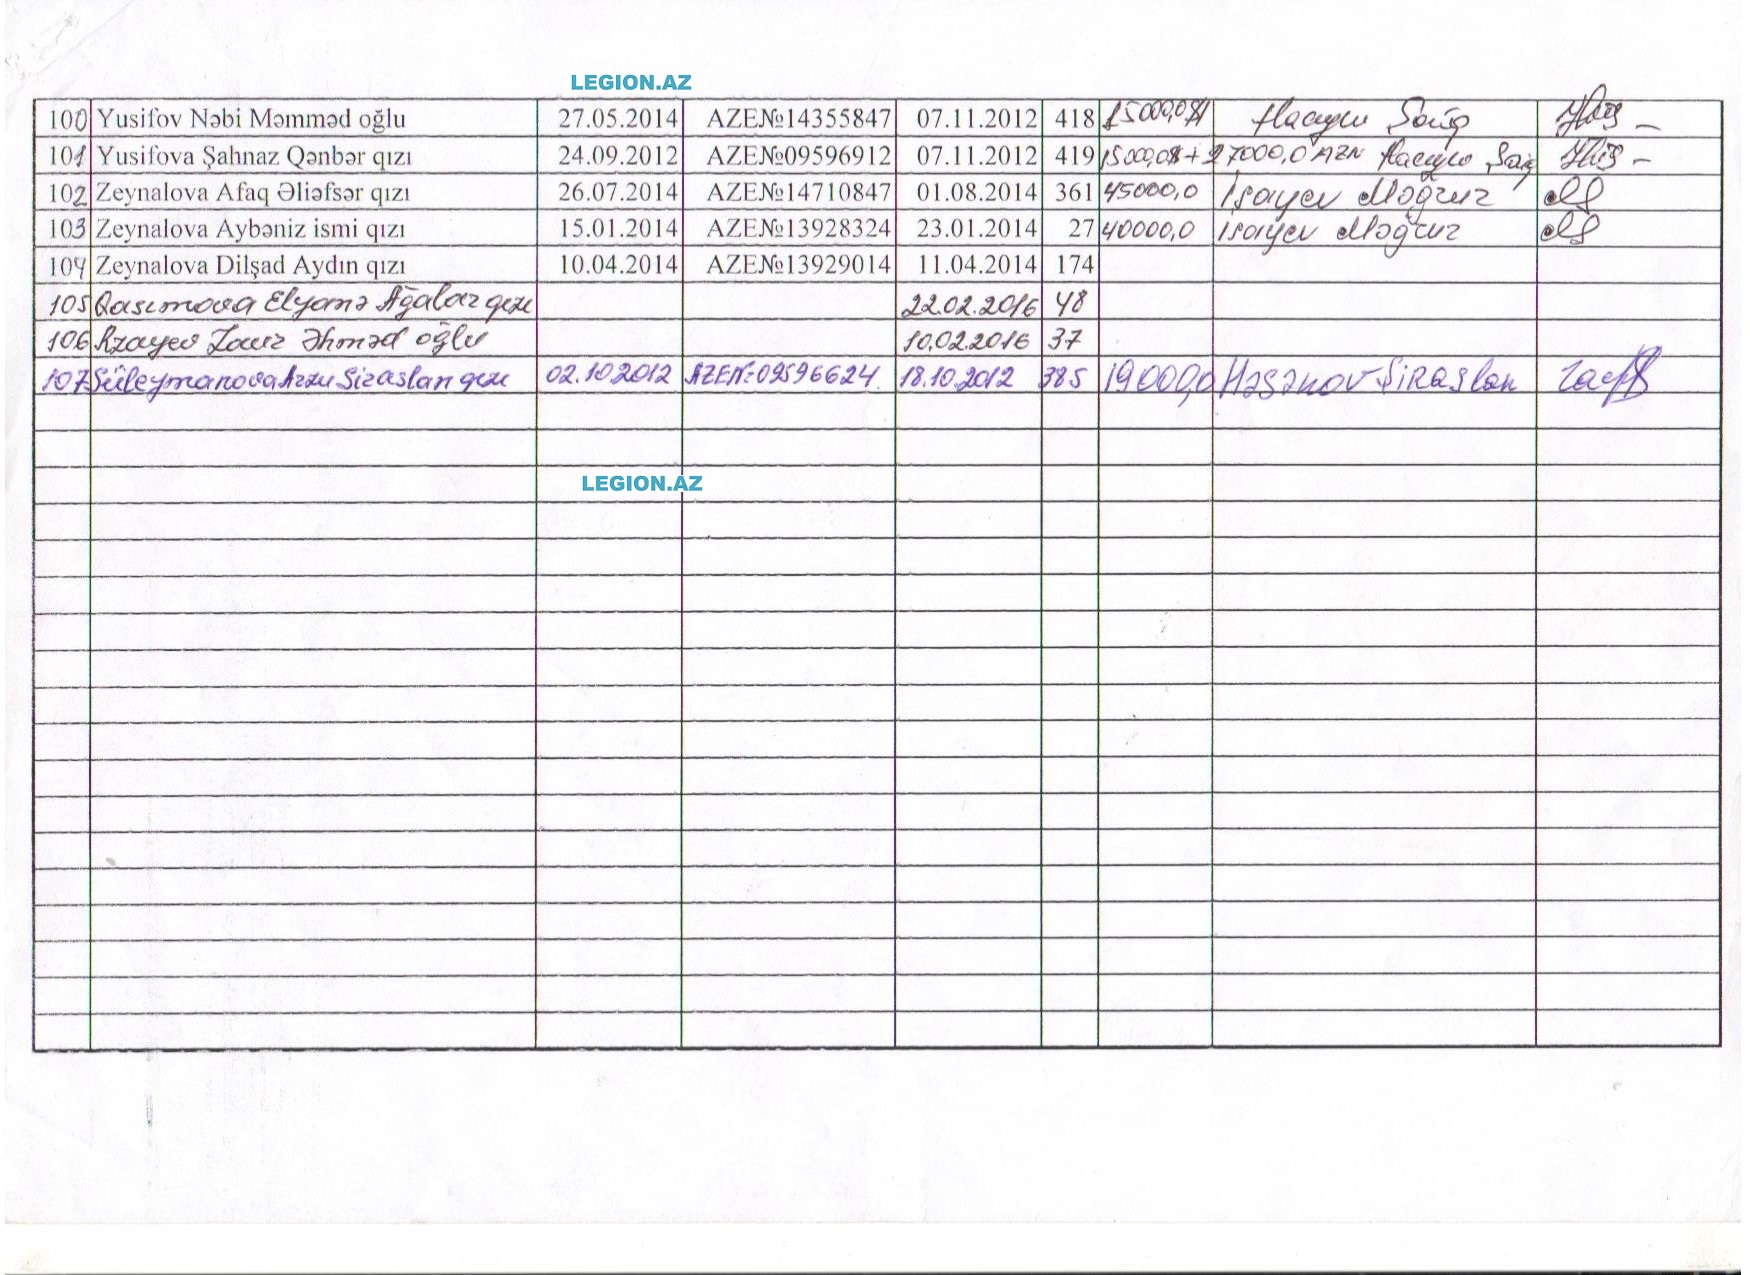 LEGION.AZ
100 Yusifov Nəbi Məmməd oğlu 27.05.2014 AZE№14355847 07.11.2012 418 15000,0
101 Yusifova Şahnaz Qənbər qızı 24.09.2012 AZE№09596912 07.11.2012 419 15000,0$ + 27000,0 AZN
102 Zeynalova Afaq Əliəfsər qızı 26.07.2014 AZE№14710847 01.08.2014 361 45000,0 İsayev Məğruz
103 Zeynalova Aybəniz ismi qızı 15.01.2014 AZE№13928324 23.01.2014 27 40000,0 İsayev Məğruz
104 Zeynalova Dilşad Aydın qızı 10.04.2014 AZE№13929014 11.04.2014 174
105 Qasımova Elyanə Ağalar qızı 22.02.2016 48
106 Rzayev Zaur Əhməd oğlu 10.02.2016 37
107 Süleymanova Arzu Siraslan qızı 02.10.2012 AZE№09596624 18.10.2012 385 19000,0 Həsənov Şiraslan
LEGION.AZ